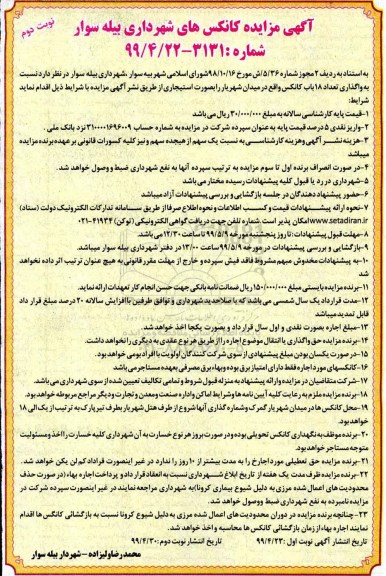 نوبت دوم
آگهی مزایده کانکس های شهرداری بیله سوار
شماره: ۳۱۳۱-۹۹/۴/۲۲
به استناد به ردیف ۲ مجوز شماره ۵/۳۶/ش مورخ ۹۸/۱۰/۱۶ شورای اسلامی شهر بیله سوار، شهرداری بیله سوار در نظر دارد نسبت
به واگذاری تعداد ۱۸ باب کانکس واقع در میدان شهریار را بصورت استیجاری از طریق نشر آگهی مزایده با شرایط ذیل اقدام نماید
شرایط:
۱-قیمت پایه کارشناسی سالانه به مبلغ ۳۰/۰۰۰/۰۰۰ ریال می باشد
۲-واریز نقدی ۵ درصد قیمت پایه به عنوان سپرده شرکت در مزایده به شماره حساب ۳۱۰۰۰۰۱۶۹۶۰۰۹ نزد بانک ملی.
۳-هزینه نشر آگهی وهزینه کارشناسی به نسبت یک سهم از هیجده سهم و نیز کلیه کسورات قانونی بر عهده برنده مزایده
میباشد
۴-در صورت انصراف برنده اول تا سوم مزایده به ترتیب سپرده آنها به نفع شهرداری ضبط و وصول خواهد شد.
۵-شهرداری در رد یا قبول کلیه پیشنهادات رسیده مختار می باشد
۶-حضور پیشنهاد دهندگان در جلسه بازگشایی و بررسی پیشنهادات آزاد میباشد
۷-نحوه ارائه پیشنهادات قیمت و کسب اطلاعات و نحوه اطلاع صرفا از طریق سامانه تدارکات الکترونیک دولت (ستاد)
www.setadiran.ir امکان پذیر است. شماره تلفن جهت دریافت گواهی الکترونیکی (توکن) ۴۱۹۳۴-۰۲۱
۸-مهلت قبول پیشنهادات: تا روز پنجشنبه مورخه ۹۹/۵/۹ تا ساعت ۱۲/۳۰ می باشد.
۹-بازگشایی و بررسی پیشنهادات در مورخه ۹۹/۵/۹ ساعت ۱۳/۰۰ در دفتر شهرداری بیله سوار میباشد.
۱۰-به پیشنهادات مخدوش مبهم مشروط فاقد فیش سپرده و خارج از مهلت مقرر قانونی به هیچ عنوان ترتیب اثر داده نخواهد
شد
۱۱-برنده مزایده بایستی مبلغ ۱۵۰/۰۰۰/۰۰۰ ریال ضمانت نامه بانکی جهت حسن انجام کار تعهدات ارائه نماید.
۱۲-مدت قرارداد یک سال شمسی می باشد که با صلاحدید شهرداری و توافق طرفین با افزایش سالانه ۲۰ درصد مبلغ قرار داد
قابل تمدید میباشد
۱۳-مبلغ اجاره بصورت نقدی و اول سال قرار داد و بصورت یکجا اخذ خواهد شد.
۱۴-برنده مزایده حق واگذاری یا انتقال موضوع اجاره را از طریق هر نوع عقدی به دیگری را نخواهد داشت.
۱۵-در صورت یکسان بودن مبلغ پیشنهادی از سوی شرکت کنندگان اولویت با افراد بومی خواهد بود.
۱۶-کانکسهای مورد اجاره فقط دارای امتیاز برق بوده و بهاء برق مصرفی بعهده مستاجر می باشد
۱۷-شرکت متقاضیان در مزایده و ارائه پیشنهاد به منزله قبول شروط و تمامی تکالیف تعیین شده از سوی شهرداری می باشد.
۱۸-برنده مزایده ملزم به رعایت کلیه آیین نامه ها و شرایط اماکن و اداره صنعت و معدن و تجارت و دیگر مراجع مربوطه خواهد بود.
۱۹-محل کانکس ها در میدان شهریار گمرک و شماره گذاری آنها شروع از طرف هتل شهریار بطرف تیر پارک به ترتیب از یک الی ۱۸
خواهد بود.
۲۰-برنده موظف به نگهداری کانکس تحویلی بوده و در صورت بروز هر نوع خسارت به آن شهرداری کلیه خسارت را اخذ و مسئولیت
متوجه مستاجر خواهد بود.
۲۱-برنده مزایده حق تعطیلی مورد اجاره را به مدت بیشتر از ۱۰ روز را ندارد در غیر اینصورت قرارداد کم لن یکن خواهد شد.
۲۲-برنده مزایده ظرف مدت یک هفته از تاریخ ابلاغ شهرداری نسبت به انعقاد قرار داد و پرداخت اجاره بهاء (در صورت حذف
محدودیت های اعمال شده مرزی به دلیل شیوع بیماری کرونا) به شهرداری مراجعه نمایند در غیر اینصورت سپرده شرکت در
مزایده نامبرده به نفع شهرداری ضبط و وصول خواهد شد.
۲۳-چنانچه برنده مزایده در دوران محدودیت های اعمال شده مرزی به دلیل شیوع کرونا نسبت به بازگشائی کانکس ها اقدام
نمایند اجاره بهاء از زمان بازگشائی کانکس ها محاسبه و اخذ خواهد شد.
تاریخ انتشار آگهی نوبت اول: ۹۹/۴/۲۳ تاریخ انتشار نوبت دوم: ۹۹/۴/۳۰
محمدرضا ولیزاده - شهردار بیله سوار